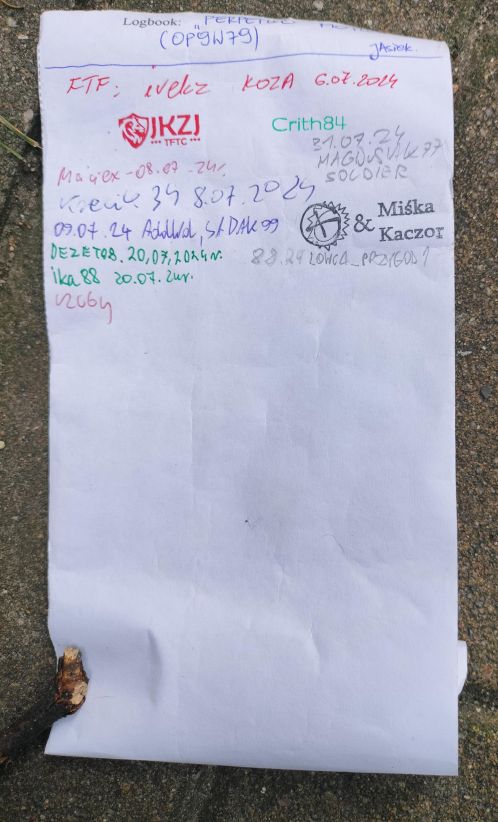 Logbook: „PERPETUUM
(OP9W79)
Jasiek.
FTF: ivekz KOZA 6.07.2024
JKZJ
••• TFTC •••
Crith84
31.07.24
MAGNUSVIK77
SOLDIER
Maciex - 08.07.24r.
34 8.07.2024
09.07.24
& Miśka
Kaczor
DEZETOB. 20,07,2024r.
8.8.24 ŁOWCA_PRZYGOD1
ika88 20.07.24r.